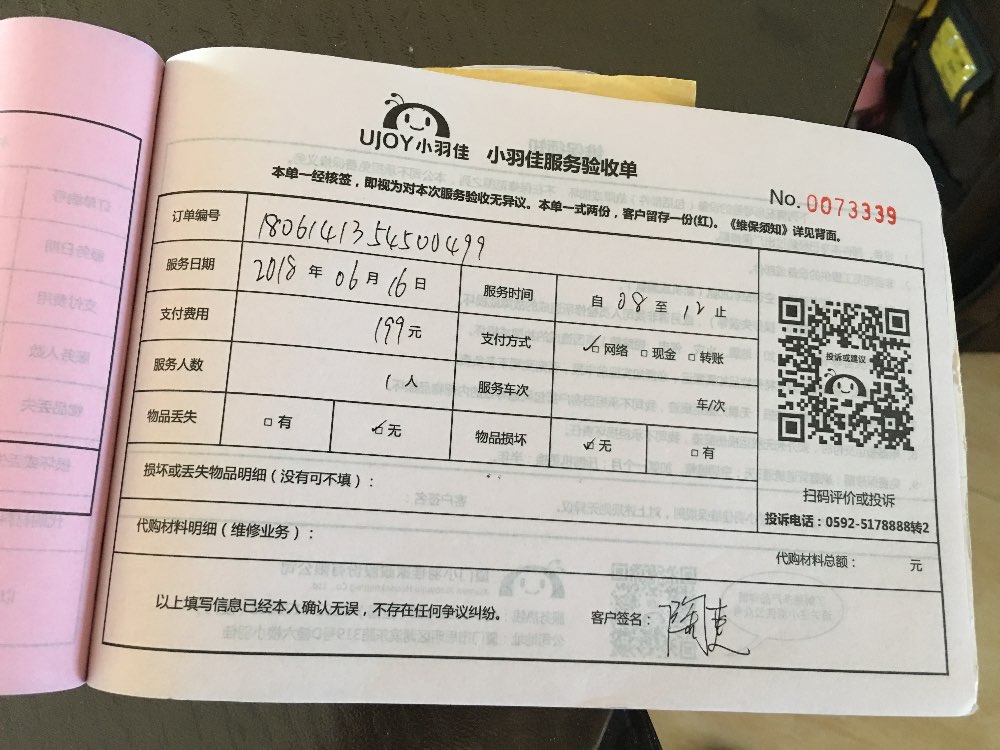 UJOY小羽佳 小羽佳服务验收单
本单一经核签，即视为对本次服务验收无异议。本单一式两份，客户留存一份(红)。《维保须知》详见背面。
No. 0073339
订单编号 1806141354500499
服务日期 2018 年 06 月 16 日 服务时间 自 08 至 12 止
支付费用 199 元 支付方式 ✓□ 网络 □ 现金 □ 转账
服务人数 1 人 服务车次 车/次
物品丢失 □ 有 ✓□ 无 物品损坏 ✓□ 无 □ 有
投诉或建议
扫码评价或投诉
投诉电话：0592-5178888转2
损坏或丢失物品明细（没有可不填）：
代购材料明细（维修业务）：
代购材料总额： 元
以上填写信息已经本人确认无误，不存在任何争议纠纷。 客户签名：